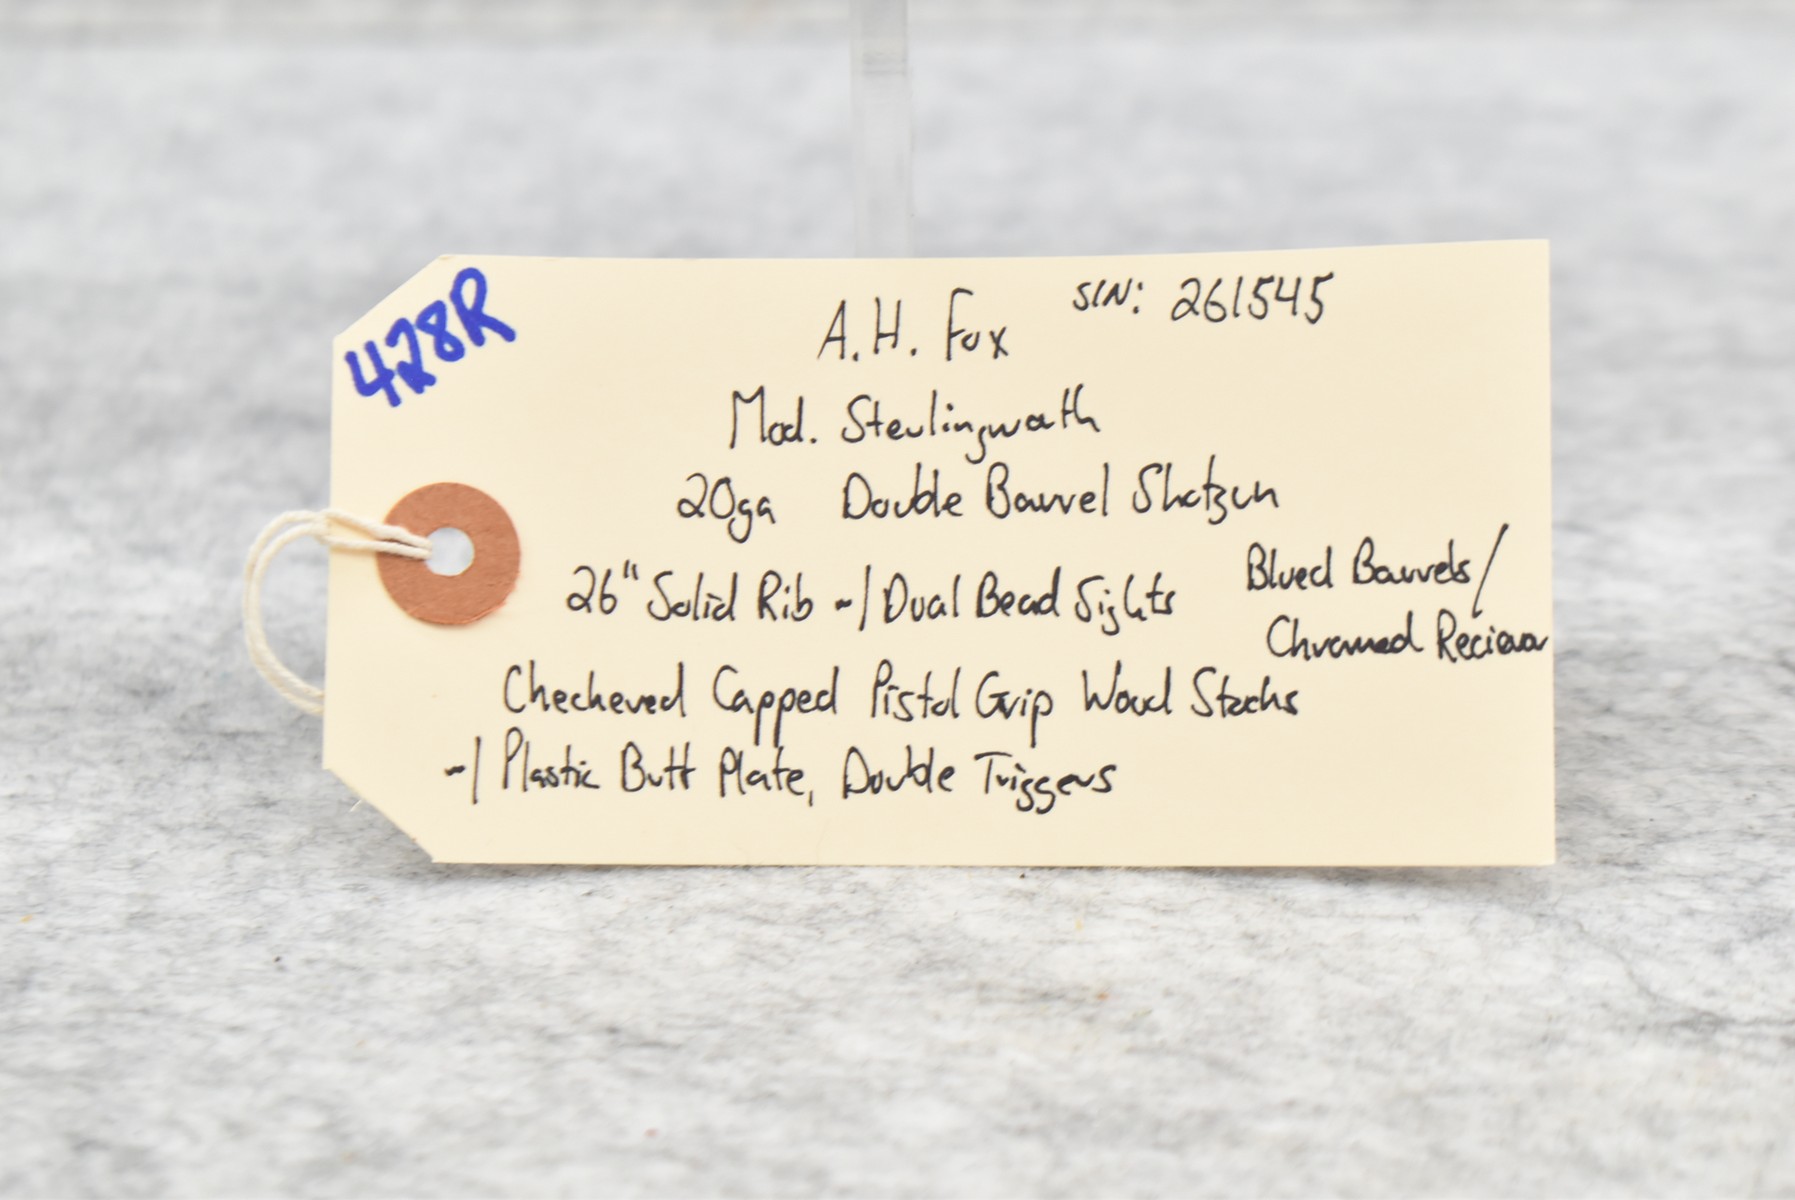 428R
A.H. Fox
S/N: 261545
Mod. Sterlingworth
20ga Double Barrel Shotgun
26" Solid Rib w/ Dual Bead Sights
Blued Barrels/
Chromed Reciever
Checkered Capped Pistol Grip Wood Stocks
w/ Plastic Butt Plate, Double Triggers